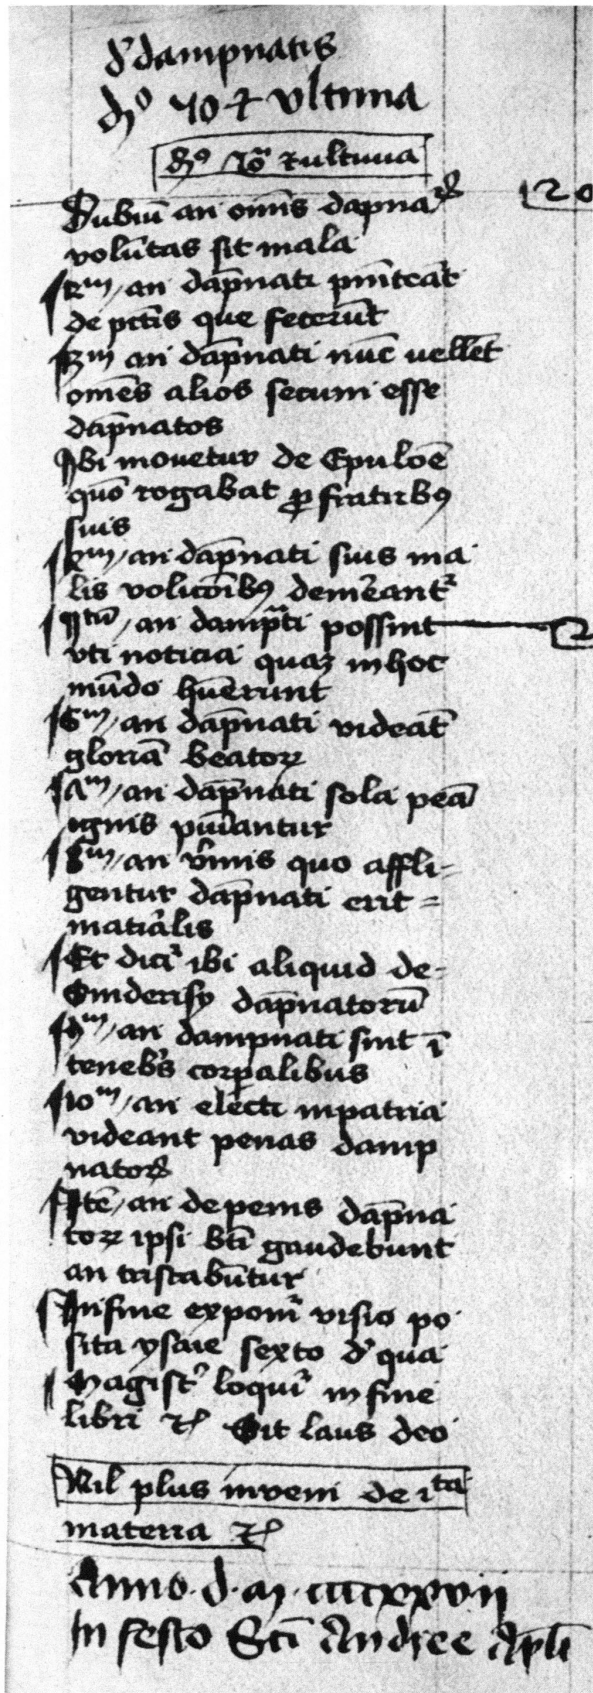 de dampnatis
do 40 et vltima
do 40 et ultima
Dubiū an omīs dāpnator
volūtas sit mala
120
2m an dāpnati pniteāt
de pctis que fecerūt
3m an dāpnati nūc uellēt
omēs alios secum esse
dāpnatos
Ibi mouetur de Epuloē
quō rogabat p fratrib9
suis
4m an dāpnati suis ma
lis volicōib9 demeant
5tū an dampti possint
vti noticia quaz in hoc
mūdo huerunt
6m an dāpnati videāt
gloriā beator
7m an dāpnati sola pēa
ignis puniantur
8m an vmis quo affli=
gentur dāpnati erit=
matialis
Et dicit ibi aliquid de=
Cinderisy dāpnatorū
9m an dampnati sint ī
tenebs corpalibus
10m an electi in patria
videant penas damp
nator
Itē an de penis dāpna
tor ipsi bti gaudebunt
an tristabūtur
In fine exponit visio po
sita ysaie sexto de qua
Magist loquit in fine
libri etc Sit laus deo
Nil plus inveni de ista
materia etc
Anno d m ccccxxvij
In festo Scti Andree Apli